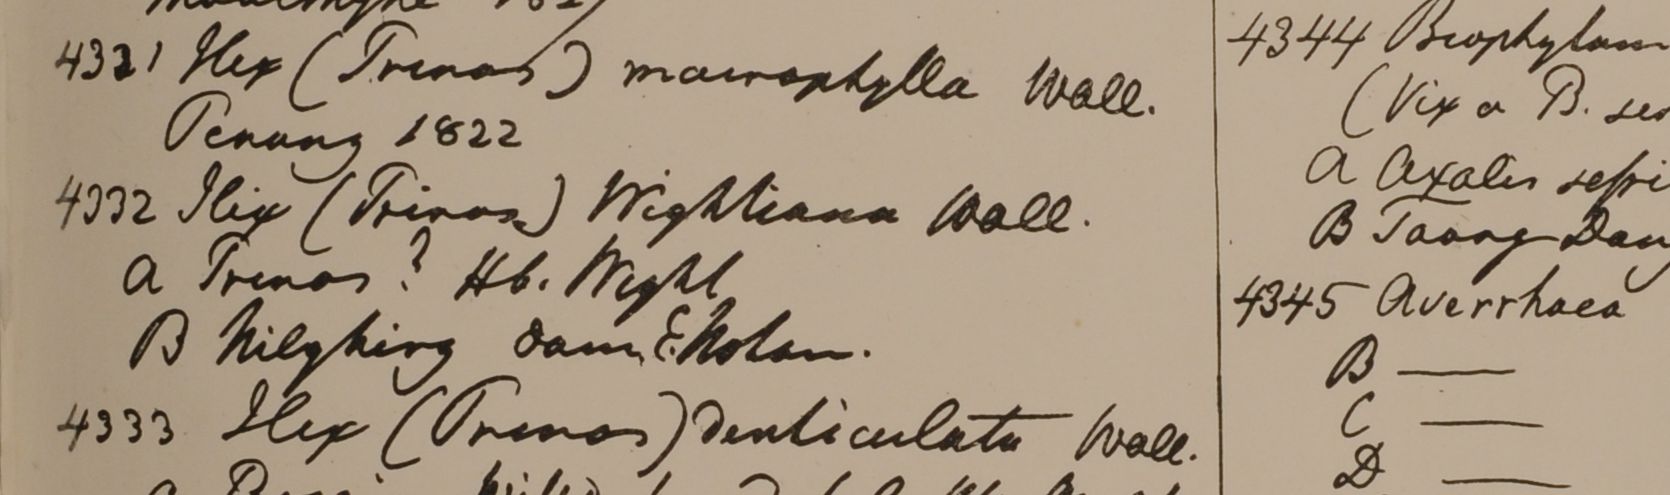 4331 Ilex (Prinos) macrophylla Wall.
Penang 1822
4332 Ilex (Prinos) Wightiana Wall.
a Prinos? Hb. Wight
B Nilghiry dam. E. Noton.
4333 Ilex (Prinos) denticulata Wall.
4344 Biophytum
(Vix a B. sen
a Oxalis sensi
B Taong Dong
4345 Averrhoea
B —
C —
D —